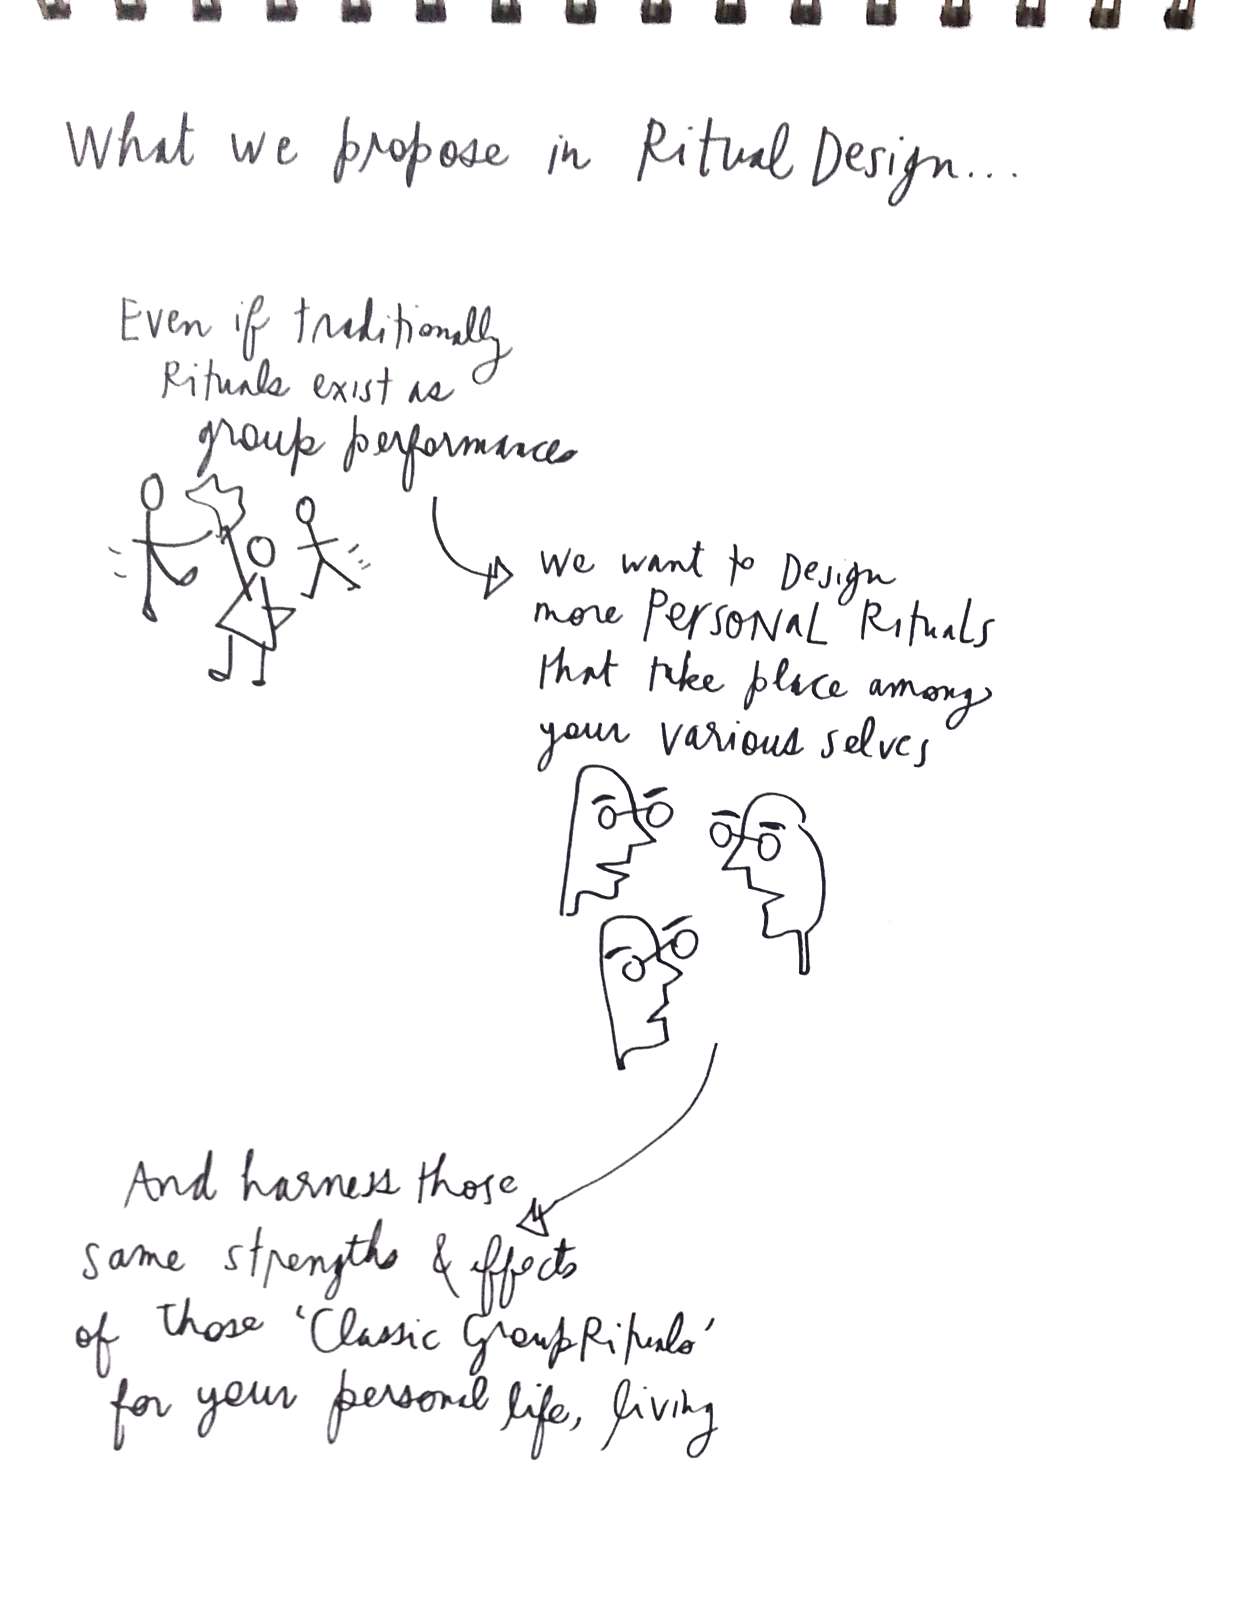 What we propose in Ritual Design...
Even if traditionally
Rituals exist as
group performances
We want to Design
more PERSONAL Rituals
that take place among
your various selves
And harness those
same strengths & effects
of those 'Classic Group Rituals'
for your personal life, living